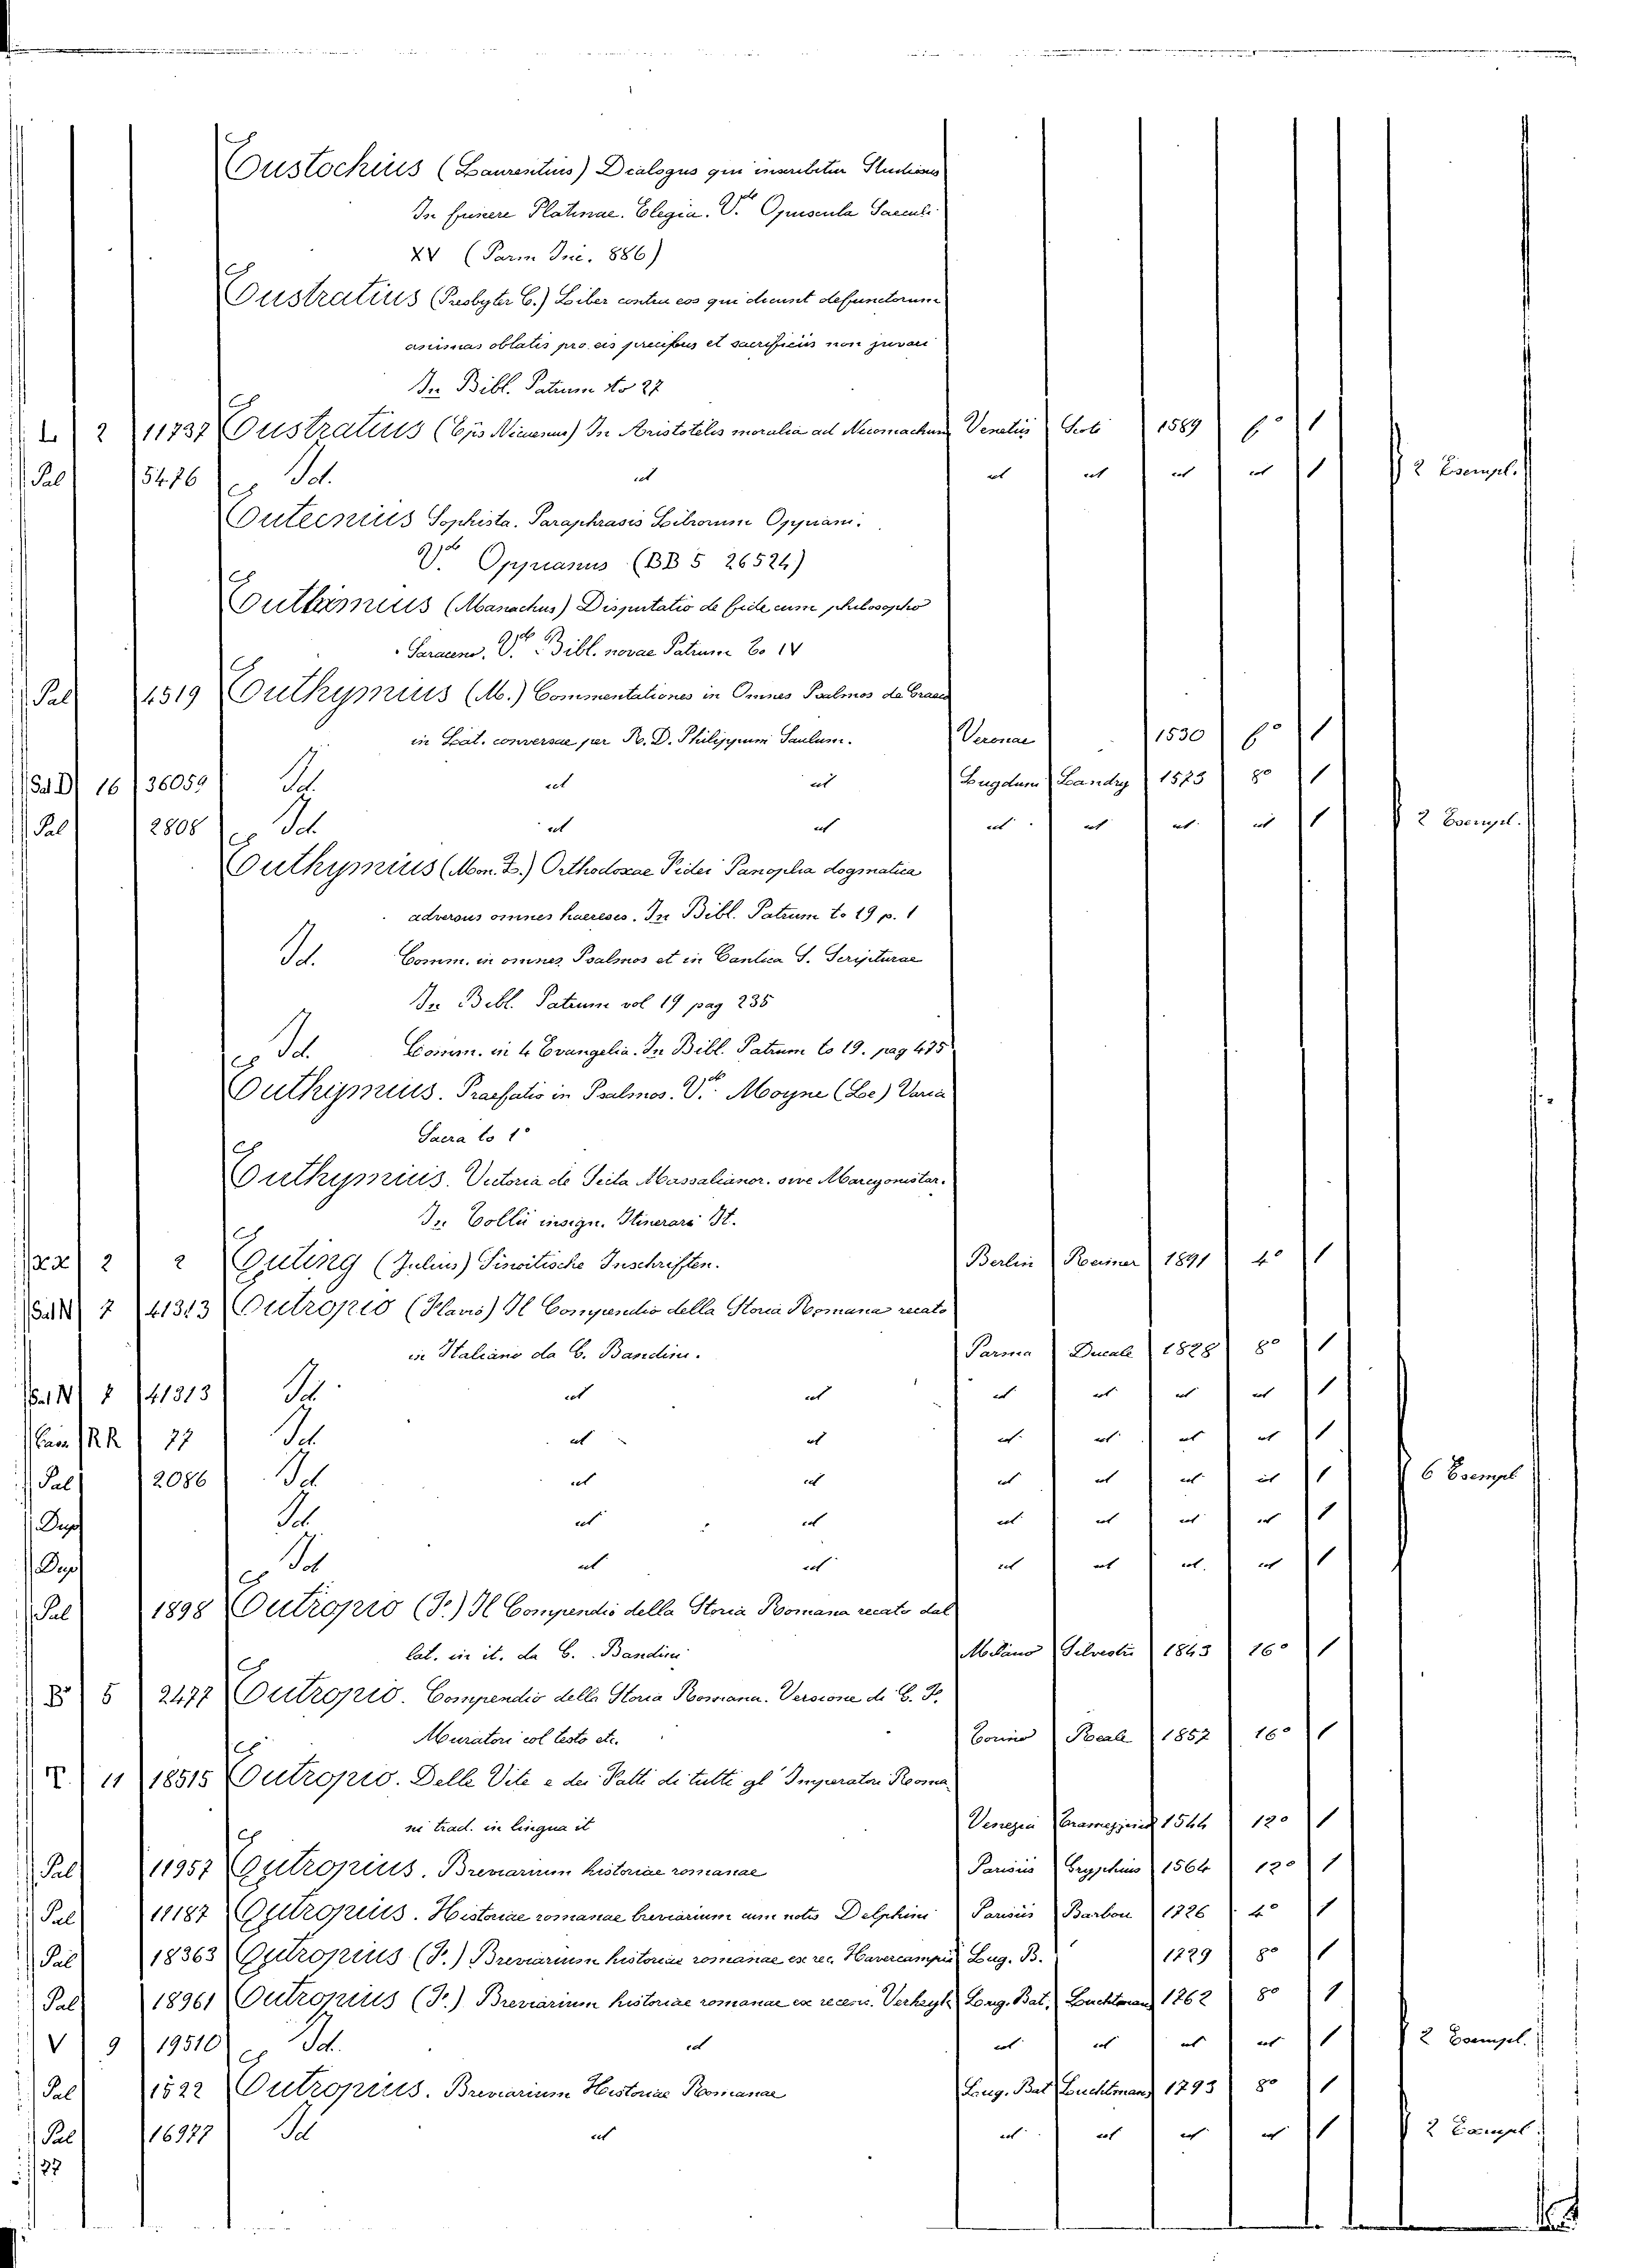 Eustochius (Laurentius) Dialogus qui inscribitur Studiosus
In funere Platinae. Elegia. V.de Opuscula Saeculi
XV (Parm Inc. 886)
Eustratius (Presbyter C.) Liber contra eos qui dicunt defunctorum
animas oblatis pro eis precibus et sacrificiis non juvari
In Bibl. Patrum to 27
L 2 11737 Eustratius (Epis Nicaenus) In Aristotelis moralia ad Nicomachum Venetiis Scoti 1589 f° 1
Pal 5476 Id. id id id id id 1 2 Esempl.
Eutecnius Sophista. Paraphrasis Librorum Oppiani.
V.de Oppianus (BB 5 26524)
Euthimius (Monachus) Disputatio de fide cum philosopho
Saraceno. V.de Bibl. novae Patrum To IV
Pal 4519 Euthymius (M.) Commentationes in Omnes Psalmos de Graeco
in Lat. conversae per R. D. Philippum Saulum. Veronae 1530 f° 1
Sal D 16 36059 Id. id id Lugduni Landry 1573 8° 1
Pal 2808 Id id id id id id id 1 2 Esempl.
Euthymius (Mon. Z.) Orthodoxae Fidei Panoplia dogmatica
adversus omnes haereses. In Bibl. Patrum to 19 p. 1
Id. Comm. in omnes Psalmos et in Cantica S. Scripturae
In Bibl. Patrum vol 19 pag 235
Id. Comm. in 4 Evangelia. In Bibl. Patrum to 19. pag 475
Euthymius. Praefatio in Psalmos. V.de Moyne (Le) Varia
Sacra to 1°
Euthymius. Victoria de Secta Massalianor. sive
In Collii insign. Itinerari It.
xx 2 2 Euting (Julius) Sinaitische Inschriften. Berlin Reimer 1891 4° 1
Sal N 7 41313 Eutropio (Flavio) Il Compendio della Storia Romana recato
in Italiano da C. Bandini. Parma Ducale 1828 8° 1
Sal N 7 41313 Id. id id id id id id 1
RR 77 Id. id id id id id id 1
Pal 2086 Id id id id id id id 1 6 Esempl
Dup Id. id id id id id id 1
Dup Id id id id id id id 1
Pal 1898 Eutropio (F.) Il Compendio della Storia Romana recato dal
lat. in it. da C. Bandini Milano Silvestri 1843 16° 1
B 5 2477 Eutropio. Compendio della Storia Romana. Versione di G. F.
Muratori col testo etc. Torino Reale 1857 16° 1
T. 11 18515 Eutropio. Delle Vite e dei Fatti di tutti gl' Imperatori Roma
ni trad. in lingua it Venezia Tramezzino 1544 12° 1
Pal 11957 Eutropius. Breviarium historiae romanae Parisiis Gryphius 1564 12° 1
Pal 11187 Eutropius. Historiae romanae breviarium cum notis Delphini Parisiis Barbou 1726 4° 1
Pal 18363 Eutropius (F.) Breviarium historiae romanae ex rec. Havercampii Lug. B. 1729 8° 1
Pal 18961 Eutropius (F.) Breviarium historiae romanae ex recens. Verheyk Lug. Bat. Luchtmans 1762 8° 1
V 9 19510 Id. id id id id id 1 2 Esempl.
Pal 1522 Eutropius. Breviarium Historiae Romanae Lug. Bat Luchtmans 1793 8° 1
Pal 16977 Id id id id id id 1 2 Esempl.
27